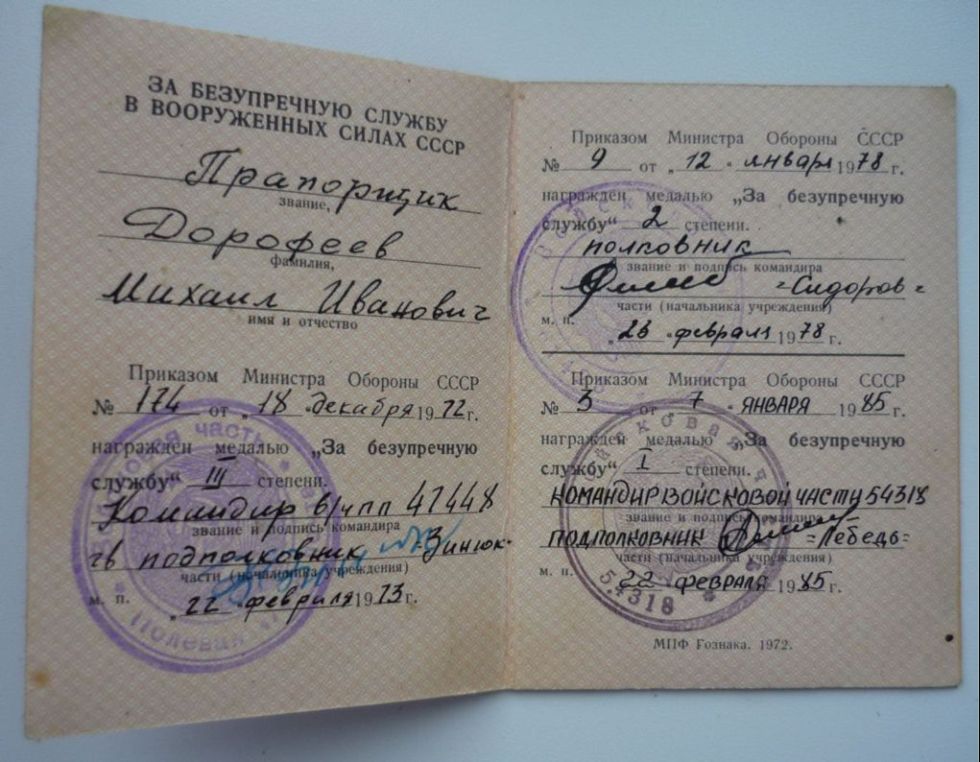 ЗА БЕЗУПРЕЧНУЮ СЛУЖБУ
В ВООРУЖЕННЫХ СИЛАХ СССР
Прапорщик
звание,
Дорофеев
фамилия,
Михаил Иванович
имя и отчество
Приказом Министра Обороны СССР
№ 174 от „18 " декабря 1972 г.
награжден медалью „За безупречную
службу“ III степени.
Командир в/ч пп 47448
звание и подпись командира
гв подполковник Зинюк
части (начальника учреждения)
м. п. „22 " февраля 1973 г.
Приказом Министра Обороны СССР
№ 9 от „12 " января 1978 г.
награждён медалью „За безупречную
службу“ 2 степени.
полковник
звание и подпись командира
=Сидоров=
части (начальника учреждения)
м. п. „23 " февраля 1978 г.
Приказом Министра Обороны СССР
№ 3 от „7 " ЯНВАРЯ 1985 г.
награждён медалью „За безупречную
службу“ I степени.
КОМАНДИР ВОЙСКОВОЙ ЧАСТИ 54318
звание и подпись командира
ПОДПОЛКОВНИК =Лебедь=
части (начальника учреждения)
м. п. „22 " ФЕВРАЛЯ 1985 г.
54318
МПФ Гознака. 1972.